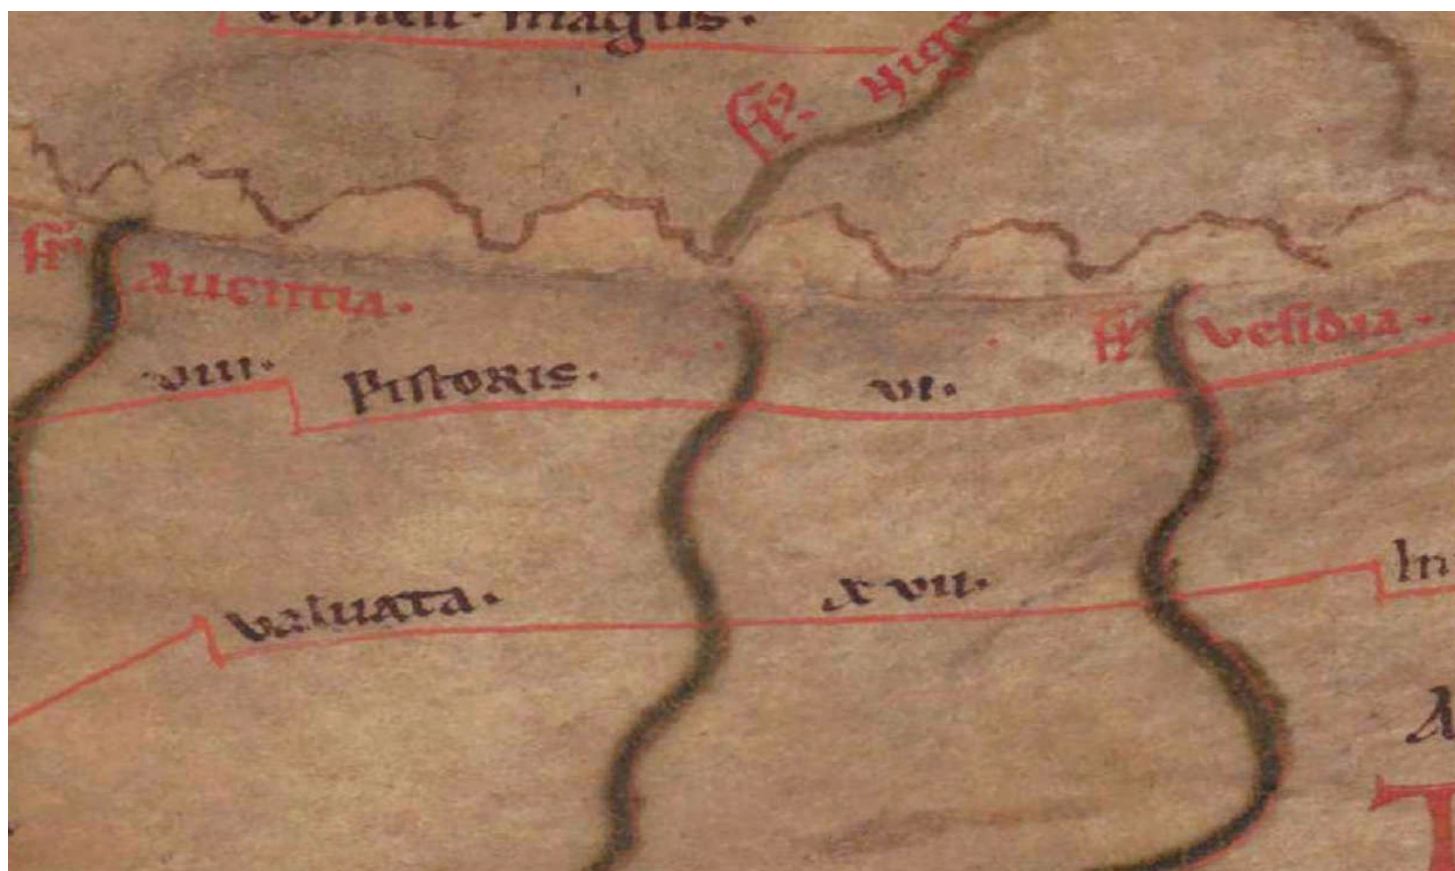 magus.
fl.
fl. Aventia.
fl. vesidia.
viii. Pistoris. vi.
valuata. xvii. In